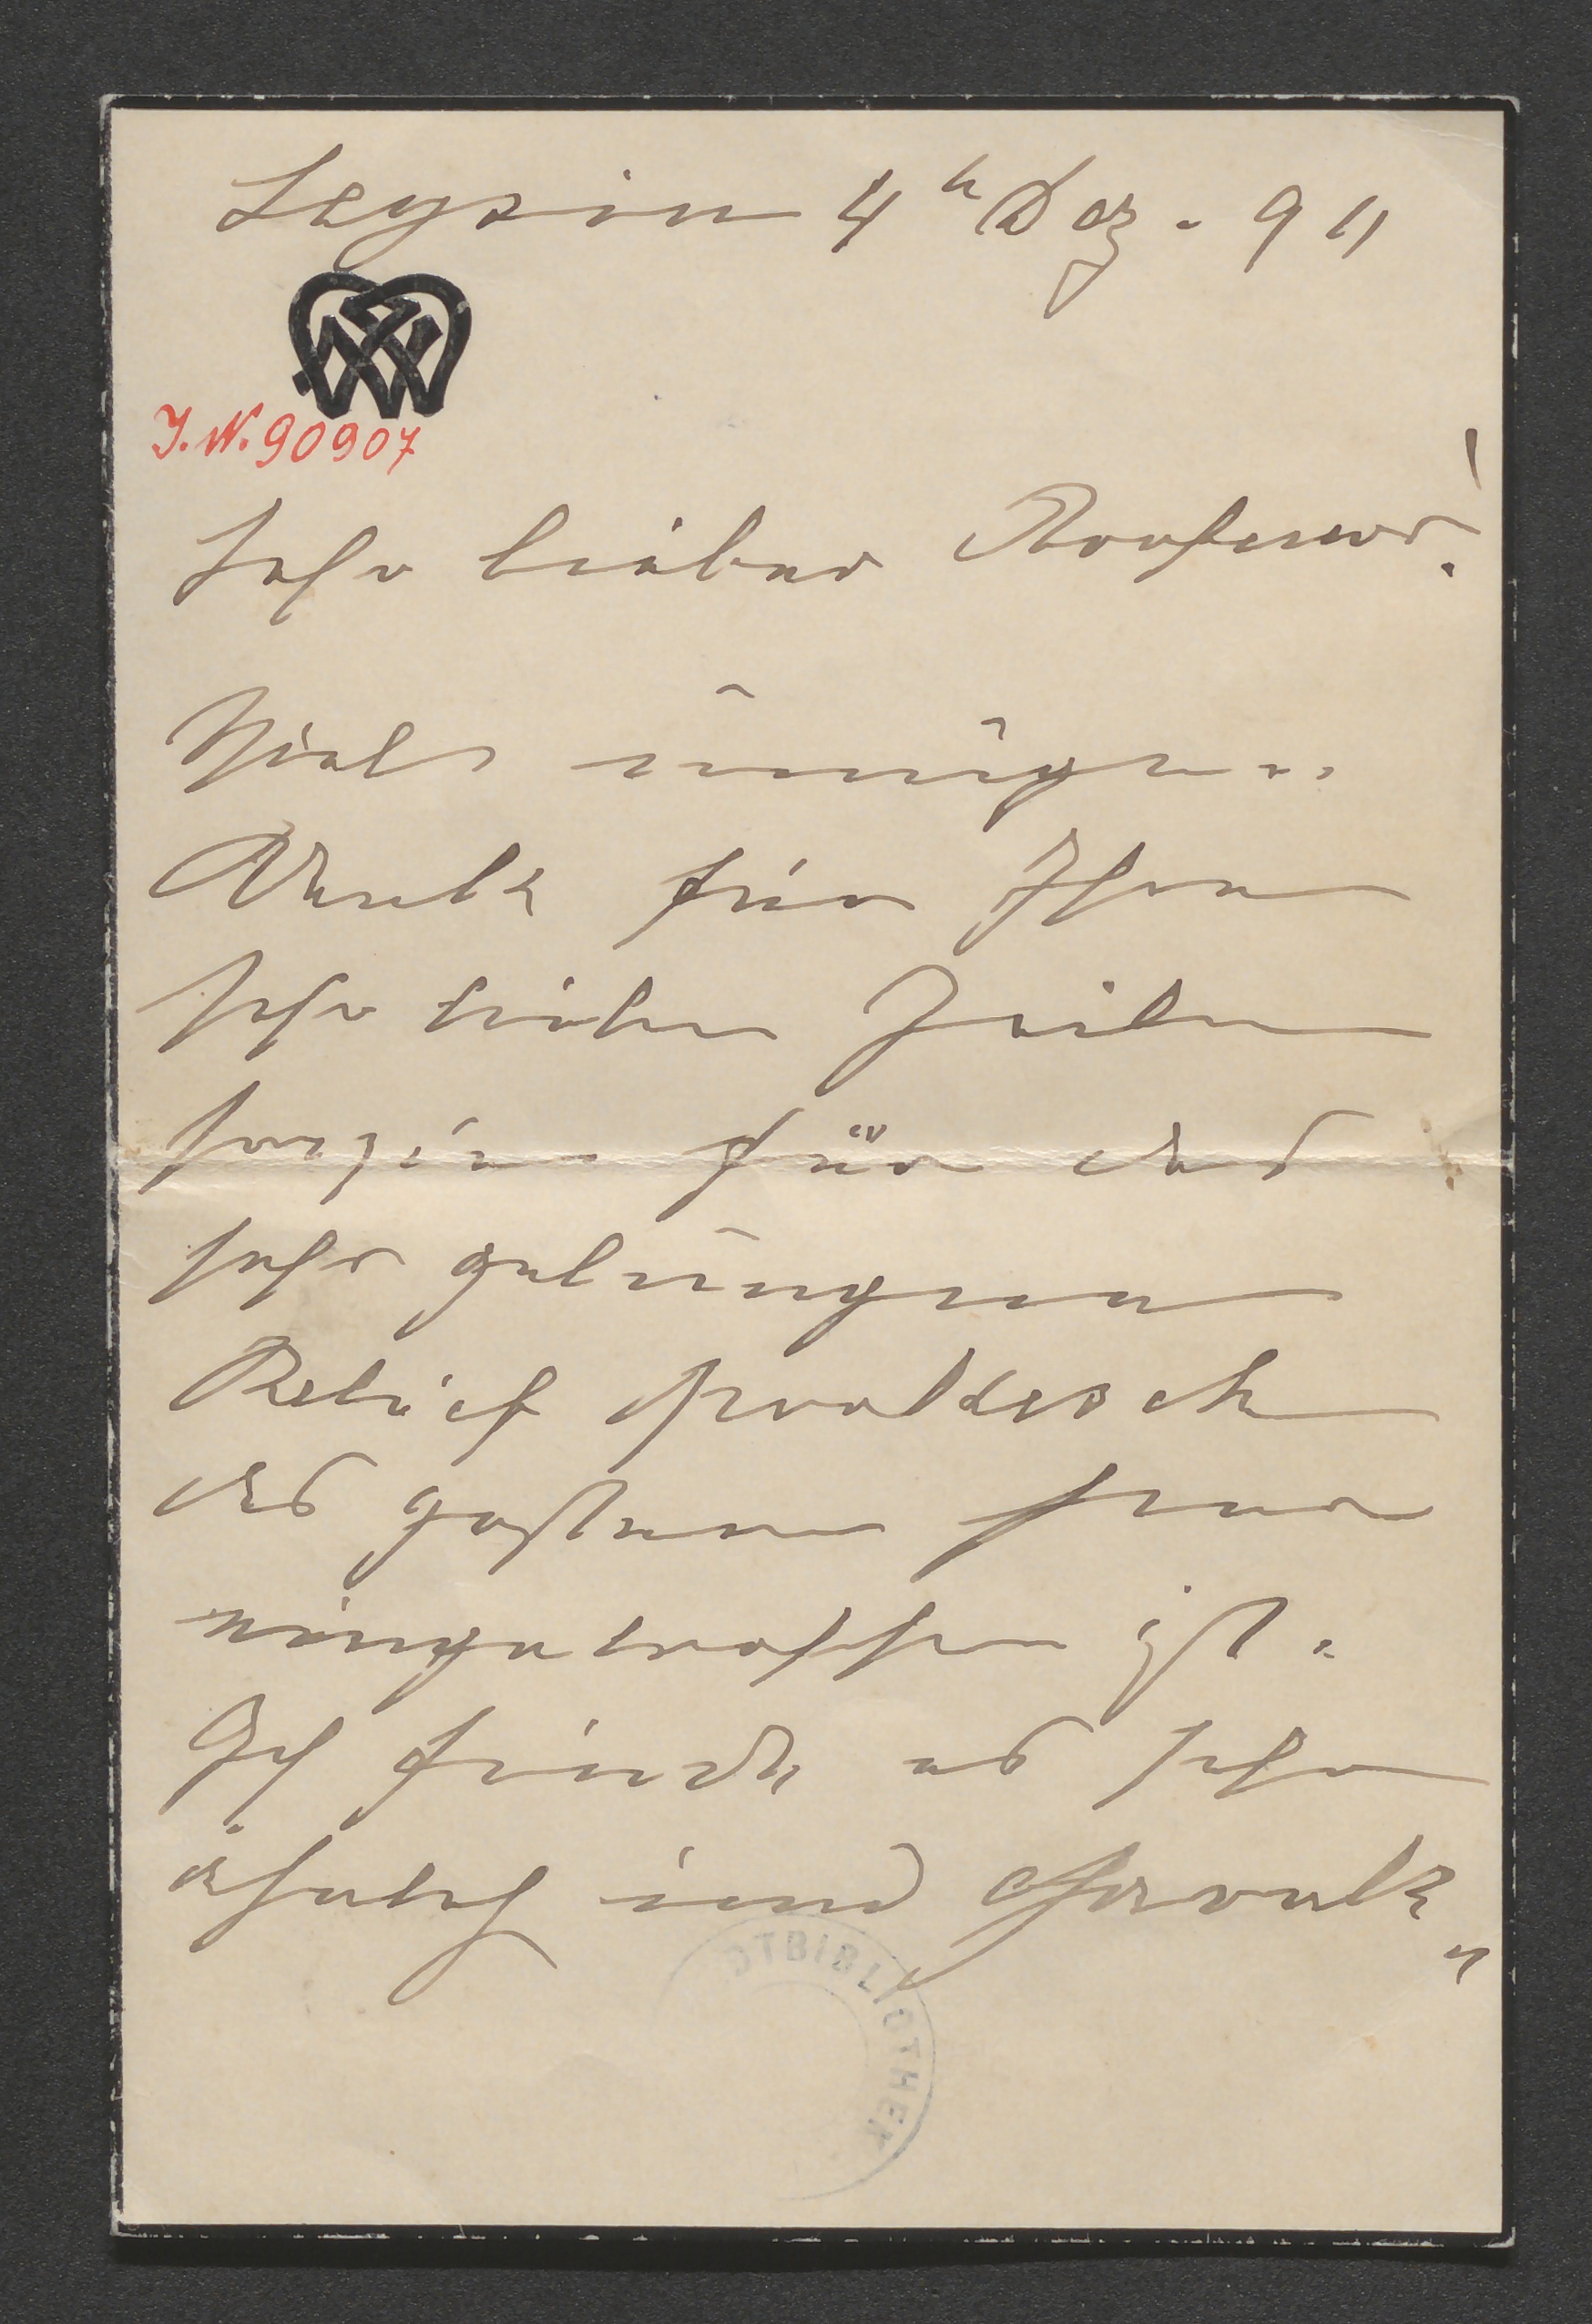 Leysin 4ten Dez. 911
J.N. 90907
Sehr lieber Professor!
Viele innigen
Dank für Ihre
sehr lieben Zeilen
sowie für das
sehr gelungene
Relief
das gestern hier
eingetroffen ist.
Ich finde es sehr
ähnlich und
BIBLIOTHEK